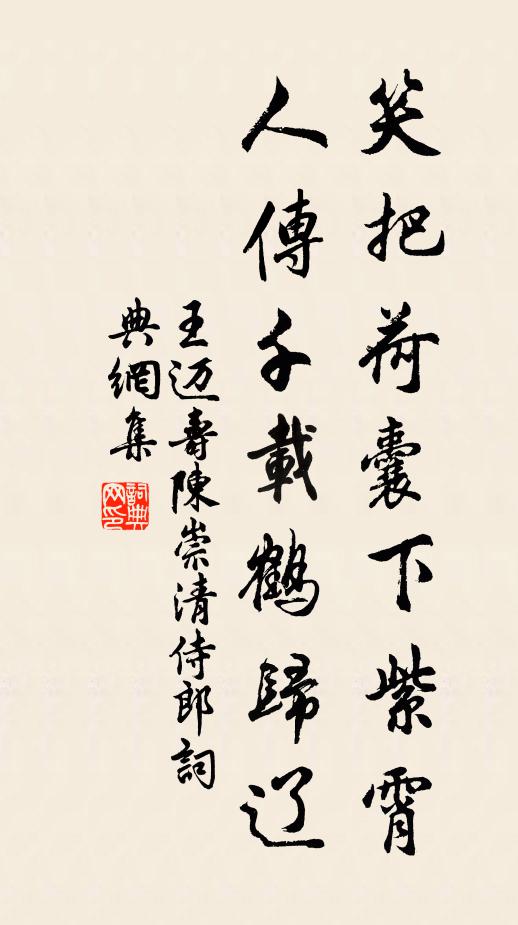 笑把荷囊下紫霄
人傳千載鶴歸辽
王迈壽陳崇清侍郎詞
典網集
詞典網印